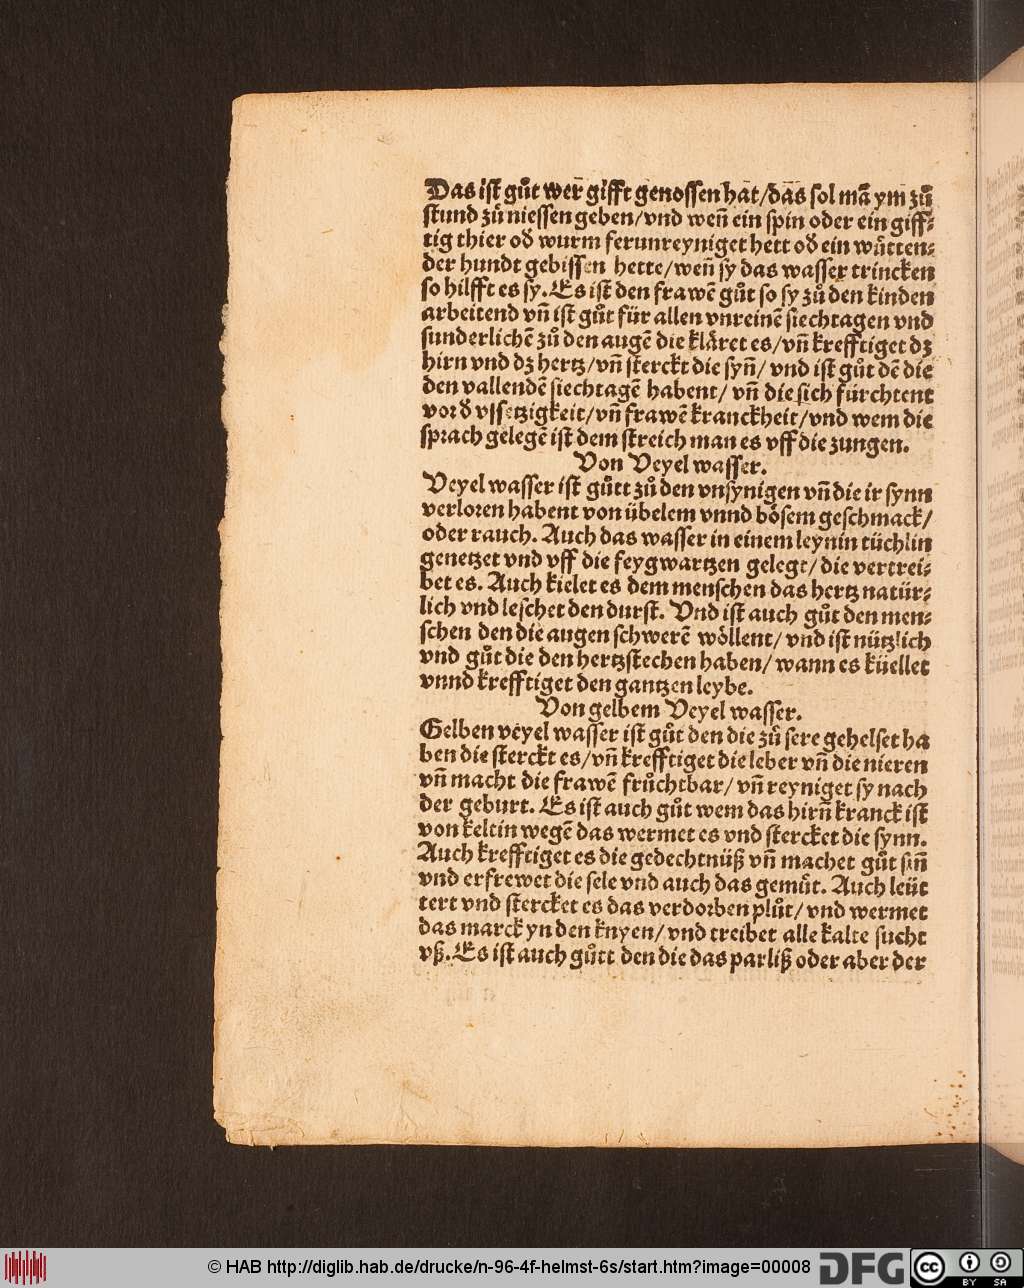 Das ist gůt wer gifft genossen hat/das sol mã ym zů
stund zů niessen geben/vnd weñ ein spin oder ein giff⸗
tig thier od̕ wurm ferunreyniget hett od̕ ein wůtten⸗
der hundt gebissen hette/weñ sy das wasser trincken
so hilfft es sy. Es ist den frawẽ gůt so sy zů den kinden
arbeitend vñ ist gůt für allen vnreinẽ siechtagen vnd
sunderlichẽ zů den augẽ die klåret es/vñ krefftiget dz
hirn vnd dz hertz/vñ sterckt die syñ/ vnd ist gůt dẽ die
den vallendẽ siechtagẽ habent/ vñ die sich fürchtent
vor d̕ vssetzigkeit/vñ frawẽ kranckheit/vnd wem die
sprach gelegẽ ist dem streich man es vff die zungen.
Von Veyel wasser.
Veyel wasser ist gůtt zů den vnsynigen vñ die ir synn
verloren habent von übelem vnnd bösem geschmack/
oder rauch. Auch das wasser in einem leynin tüchlin
genetzet vnd vff die feygwartzen gelegt/ die vertrei⸗
bet es. Auch kielet es dem menschen das hertz natür⸗
lich vnd leschet den durst. Vnd ist auch gůt den men⸗
schen den die augen schwerẽ wöllent/ vnd ist nützlich
vnd gůt die den hertzstechen haben/ wann es küellet
vnnd krefftiget den gantzen leybe.
Von gelbem Veyel wasser.
Gelben veyel wasser ist gůt den die zů sere gehelset ha
ben die sterckt es/vñ krefftiget die leber vñ die nieren
vñ macht die frawẽ frůchtbar/ vñ reyniget sy nach
der geburt. Es ist auch gůt wem das hirñ kranck ist
von keltin wegẽ das wermet es vnd stercket die synn.
Auch krefftiget es die gedechtnüß vñ machet gůt siñ
vnd erfrewet die sele vnd auch das gemüt. Auch leüt
tert vnd stercket es das verdorben plůt/ vnd wermet
das marck yn den knyen/ vnd treibet alle kalte sucht
vß. Es ist auch gůtt den die das parliß oder aber der
© HAB http://diglib.hab.de/drucke/n-96-4f-helmst-6s/start.htm?image=00008
DFG
cc
BY SA